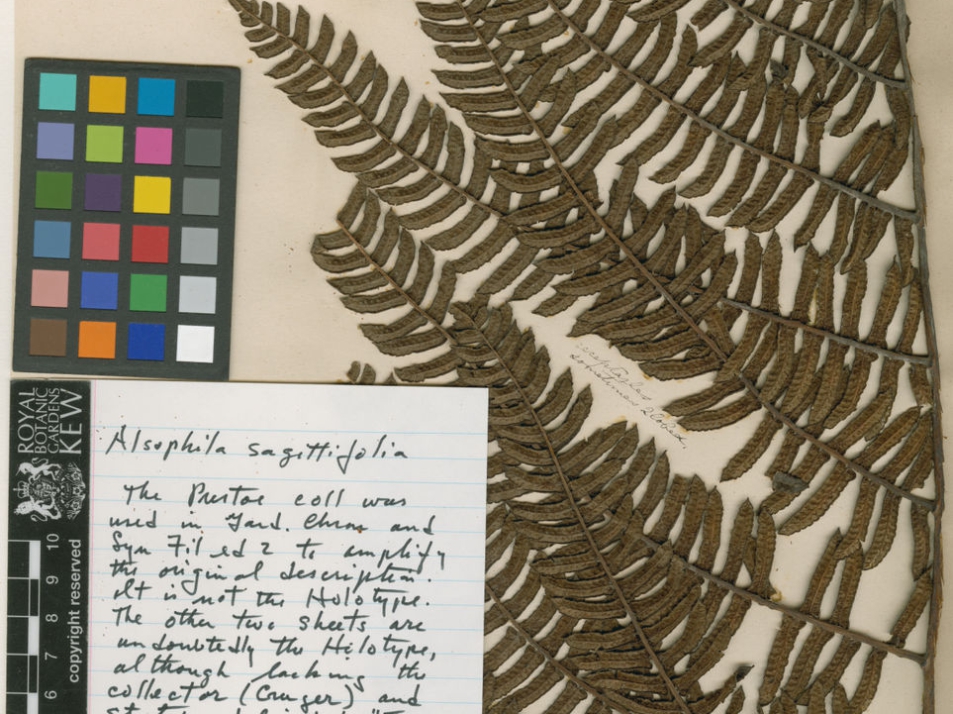 receptacles
sometimes 2 lobed.
ROYAL
BOTANIC
GARDENS
KEW
10
9
8
7
6
copyright reserved
Alsophila sagittifolia
The Prestoe coll was
used in Gard. Chron and
Syn Fil ed 2 to amplify
the original description.
It is not the Holotype.
The other two sheets are
undoubtedly the Holotype,
although lacking the
collector (Cruger) and